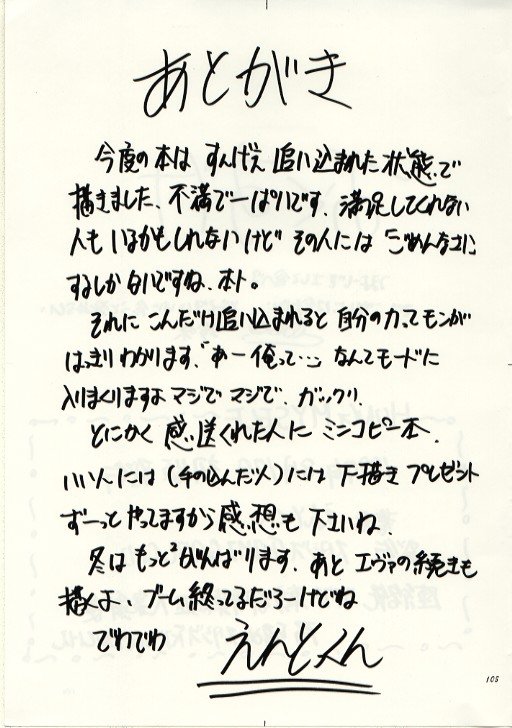 あとがき
今度の本は すんげえ 追い込まれた状態で
描きました、不満で一ぱいです、満足してくれない
人もいるかもしれないけど その人には「ごめんなさい」
するしかないですね、ホト。
それに こんだけ追い込まれると 自分の力ってモンが
はっきりわかります、「あー俺って…」なんてモードに
入りまくりますよ マジで マジで、ガックリ、
とにかく 感想送くれた人に ミニコピー本、
いい人には(手の込んだ人)には 下描き プレゼント
ずーっと やってますから 感想も 下さいね、
冬は もっと²がんばります、あと エヴァの続きも
描くよ、ブーム終ってるだろーけどね
でわでわ
えんどくん
105